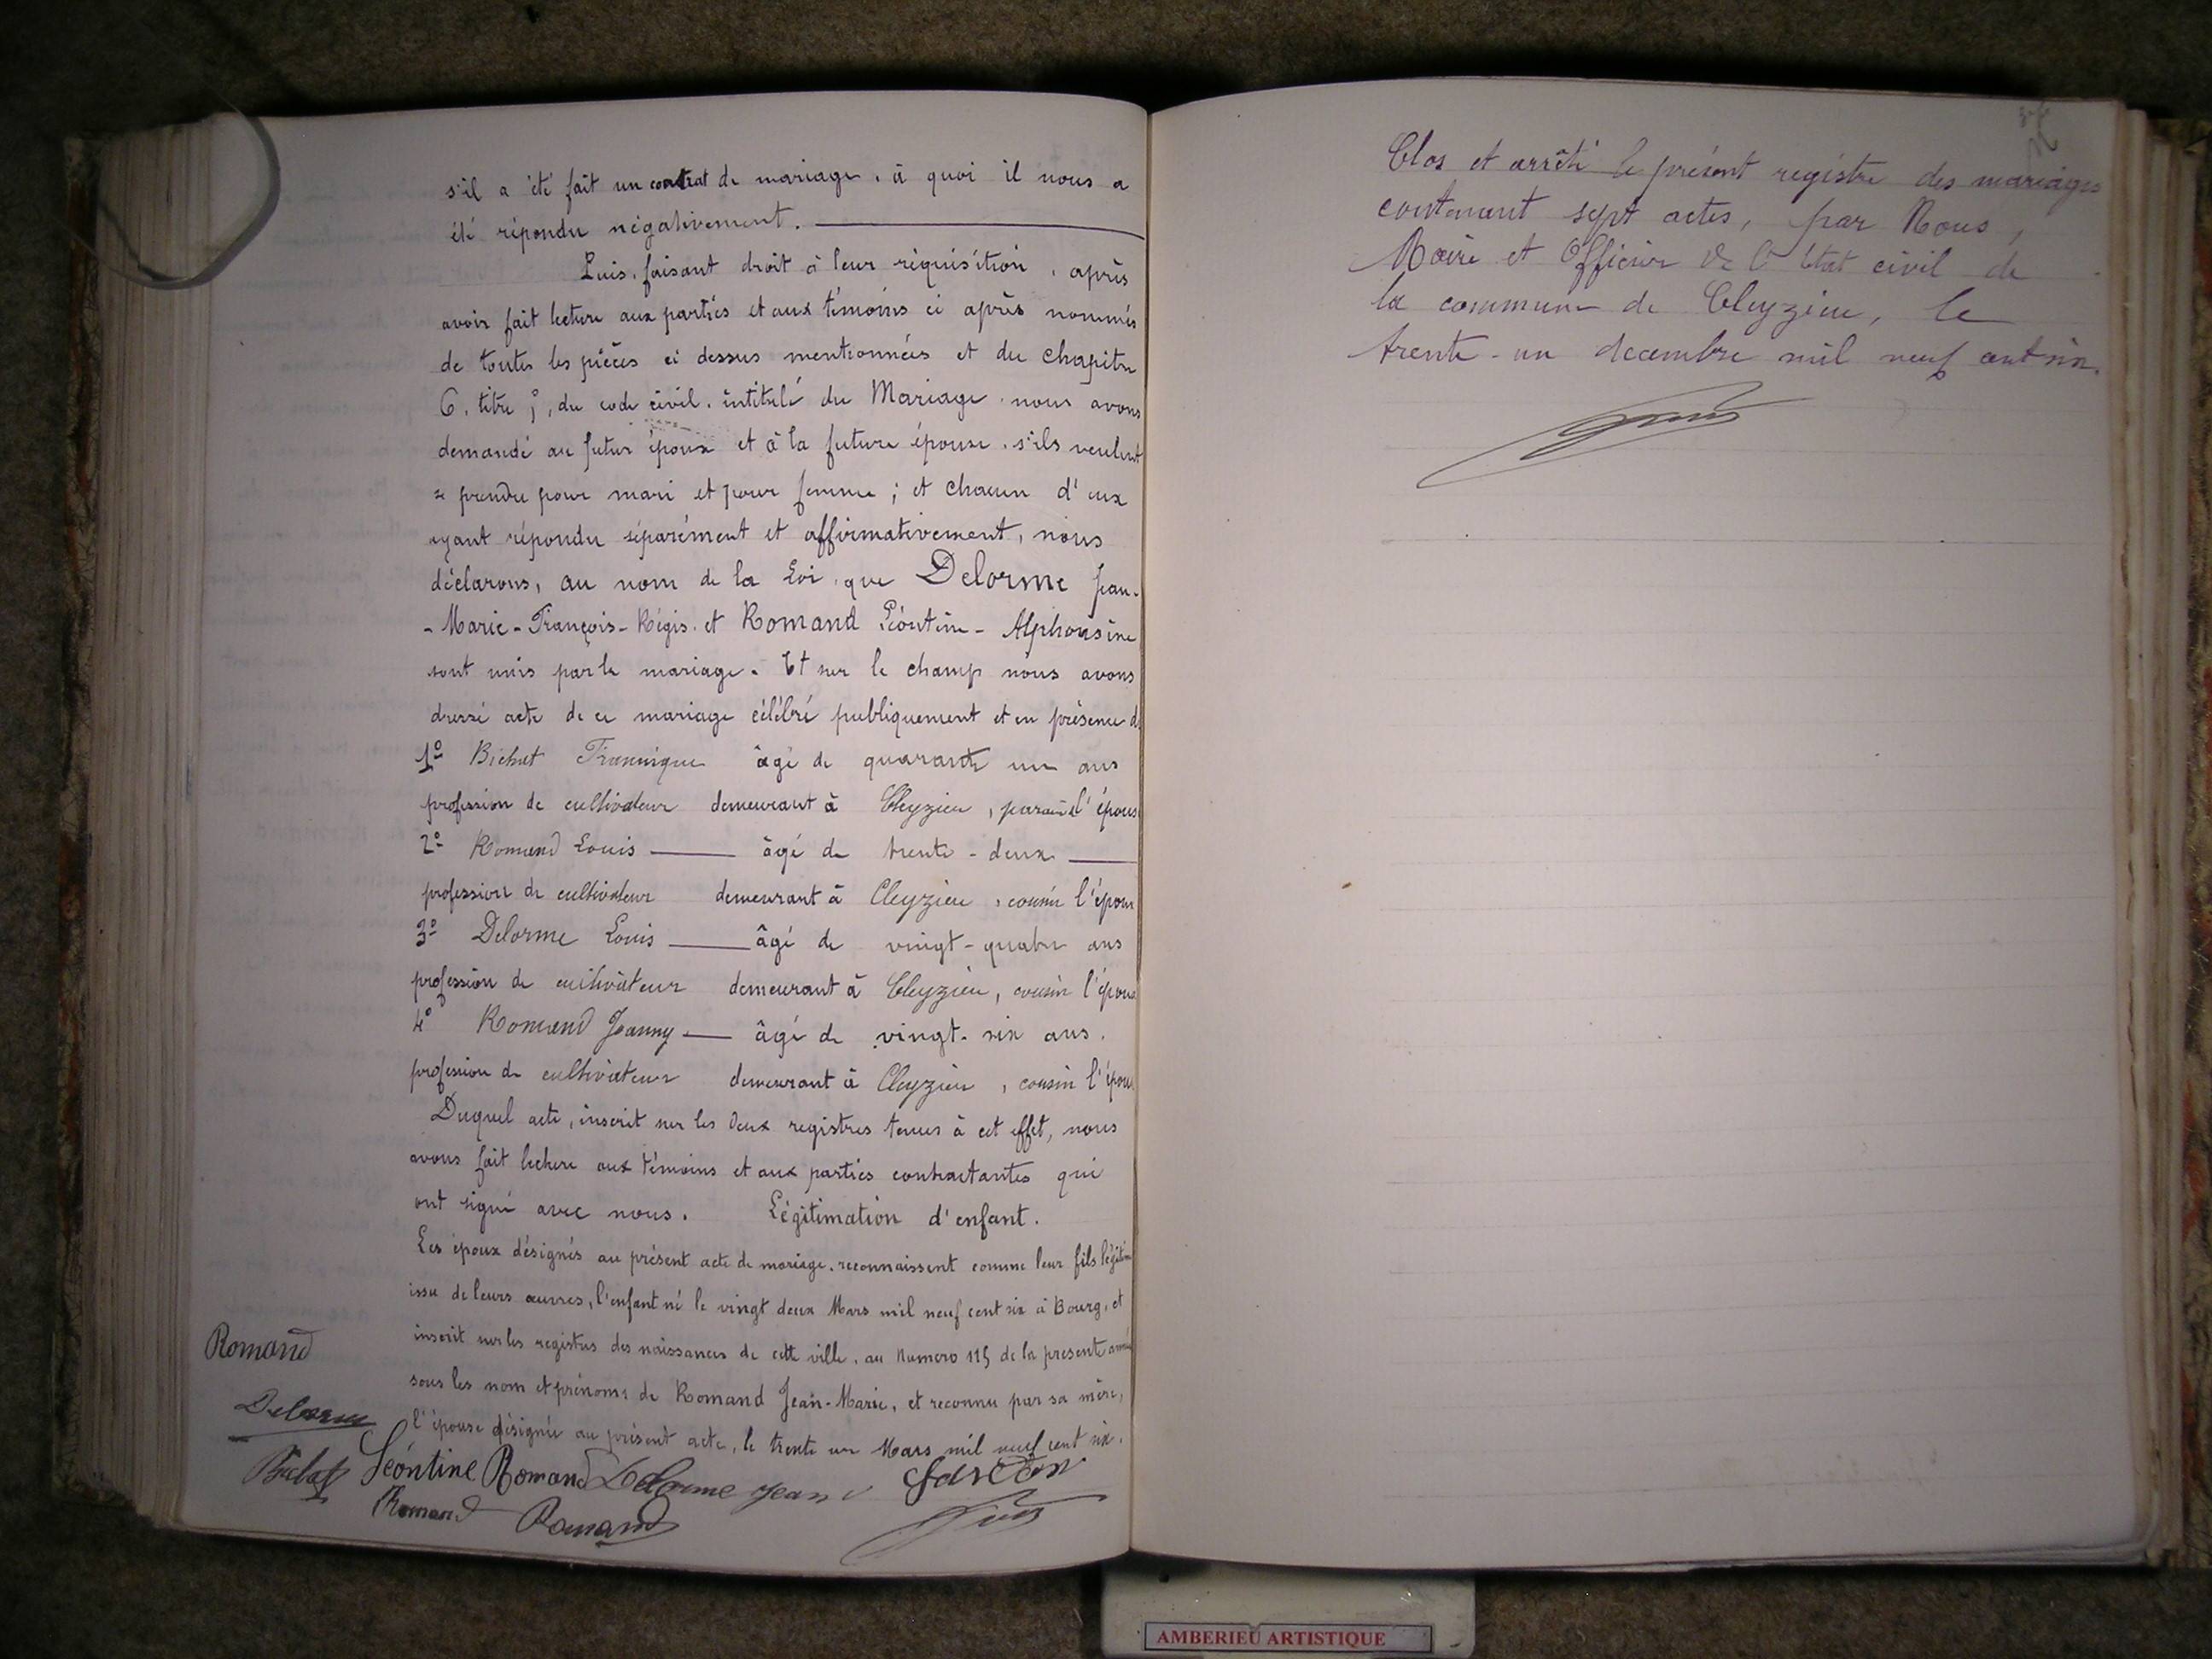 s'il a été fait un contrat de mariage, à quoi il nous a
été répondu négativement.
Puis, faisant droit à leur réquisition, après
avoir fait lecture aux parties et aux témoins ci après nommés
de toutes les pièces ci dessus mentionnées et du chapitre
6, titre 5, du code civil, intitulé du Mariage, nous avons
demandé au futur époux et à la future épouse, s'ils veulent
se prendre pour mari et pour femme ; et chacun d'eux
ayant répondu séparément et affirmativement, nous
déclarons, au nom de la Loi, que Delorme Jean-
-Marie-François-Régis, et Romand Léontine-Alphonsine
sont unis par le mariage. Et sur le champ nous avons
dressé acte de ce mariage célébré publiquement et en présence d
1º Bichat âgé de quarante un ans
profession de cultivateur demeurant à Cleyzieu, l'épous
2º Romand Louis âgé de trente-deux
profession de cultivateur demeurant à Cleyzieu, cousin l'épou
3º Delorme Louis âgé de vingt-quatre ans
profession de cultivateur demeurant à Cleyzieu, cousin l'épou
4º Romand Joanny âgé de vingt-six ans.
profession de cultivateur demeurant à Cleyzieu, cousin l'épou
Duquel acte, inscrit sur les deux registres tenus à cet effet, nous
avons fait lecture aux témoins et aux parties contractantes qui
ont signé avec nous. Légitimation d'enfant.
Les époux désignés au présent acte de mariage, reconnaissent comme leur fils légitime
issu de leurs œuvres, l'enfant né le vingt deux Mars mil neuf cent six à Bourg, et
inscrit sur les registres des naissances de cette ville, au Numero 115 de la presente année
sous les nom et prénoms de Romand Jean-Marie, et reconnu par sa mère,
l'épouse désignée au présent acte, le trente un Mars mil neuf cent six.
Romand
Delorme
Bichat Léontine Romand Delorme Jean
Romand Romand
Clos et arrêté le présent registre des mariages
contenant sept actes, par Nous,
Maire et Officier de l'état civil de
la commune de Cleyzieu, le
trente-un decembre mil neuf cent six.
AMBERIEU ARTISTIQUE